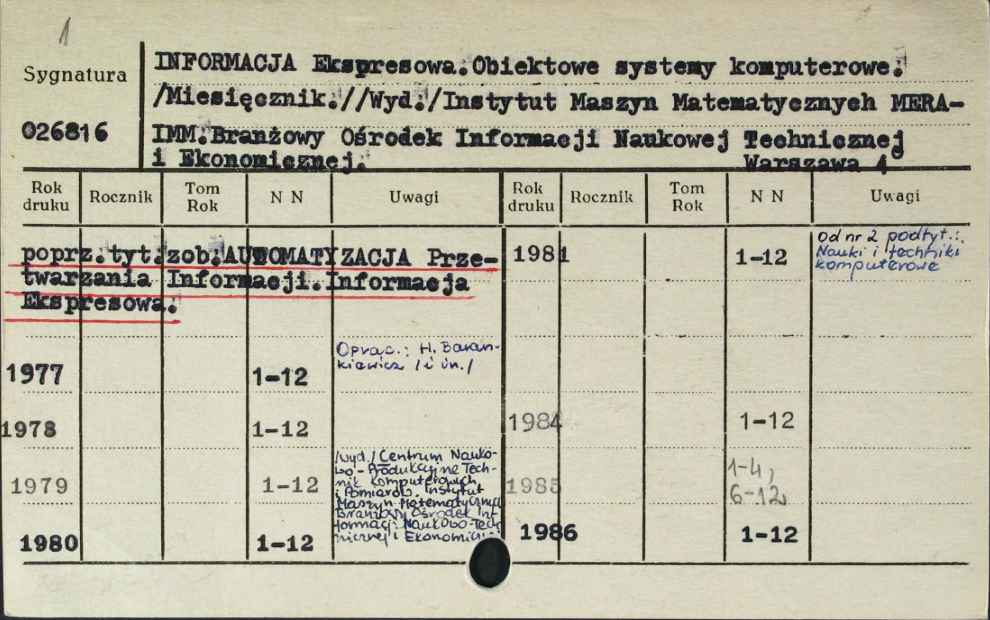 1
Sygnatura
026816
INFORMACJA Ekspresowa.Obiektowe systemy komputerowe.
/Miesięcznik.//Wyd./Instytut Maszyn Matematycznych MERA-
IMM.Branżowy Ośrodek Informacji Naukowej Technicznej
i Ekonomicznej. Warszawa 4°
Rok druku Rocznik Tom Rok N N Uwagi Rok druku Rocznik Tom Rok N N Uwagi
poprz.tyt.zob.AUTOMATYZACJA Prze-
twarzania Informacji.Informacja
Ekspresowa.
1977 1-12 Oprac.: H. Baran-
kiewicz /i in./
1978 1-12
1979 1-12 /wyd./ Centrum Nauko-
wo-Produkcyjne Tech-
nik Komputerowych
i Pomiarów. Instytut
Maszyn Matematycznych
Branżowy Ośrodek Inf
formacji Naukowo-Tech
nicznej i Ekonomicz.
1980 1-12
1981 1-12 od nr 2 podtyt.:
Nauki i techniki
komputerowe
1984 1-12
1985 1-4,
6-12
1986 1-12